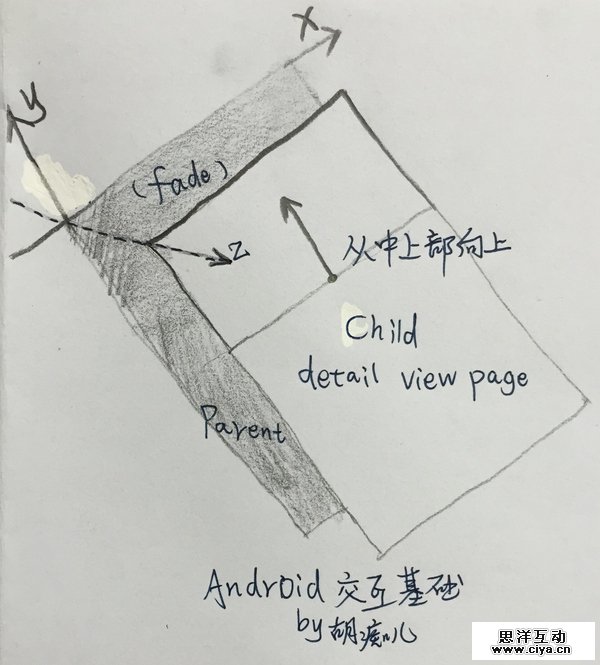 x
y
(fade)
z
从中上部向上
Child
detail view page
Parent
Android 交互基础
by 胡痴儿
思洋互动
www.ciya.cn